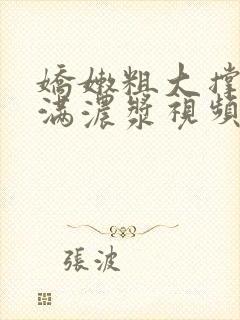 嬌嫩粗大撐
滿濃漿視頻
張波